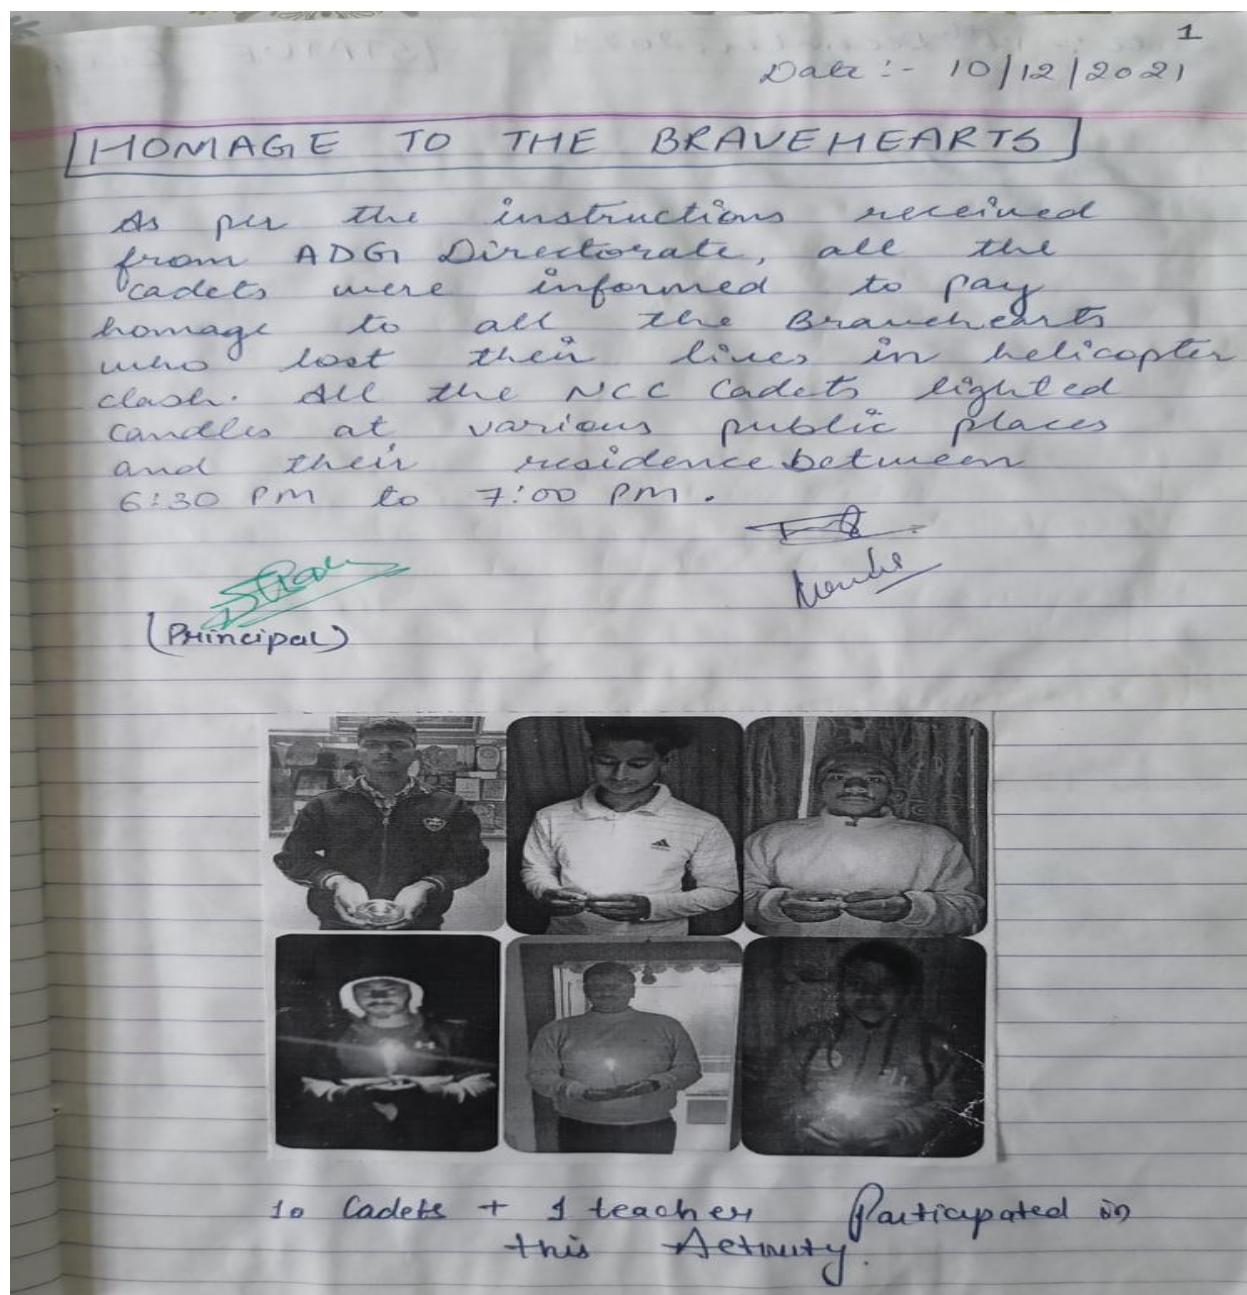 1
Date :- 10/12/2021
HOMAGE TO THE BRAVEHEARTS
As per the instructions received
from ADG Directorate, all the
cadets were informed to pay
homage to all the Bravehearts
who lost their lives in helicopter
clash. All the NCC Cadets lighted
candles at various public places
and their residence between
6:30 PM to 7:00 PM.
(Principal)
10 Cadets + 1 teacher Participated in
this Activity.